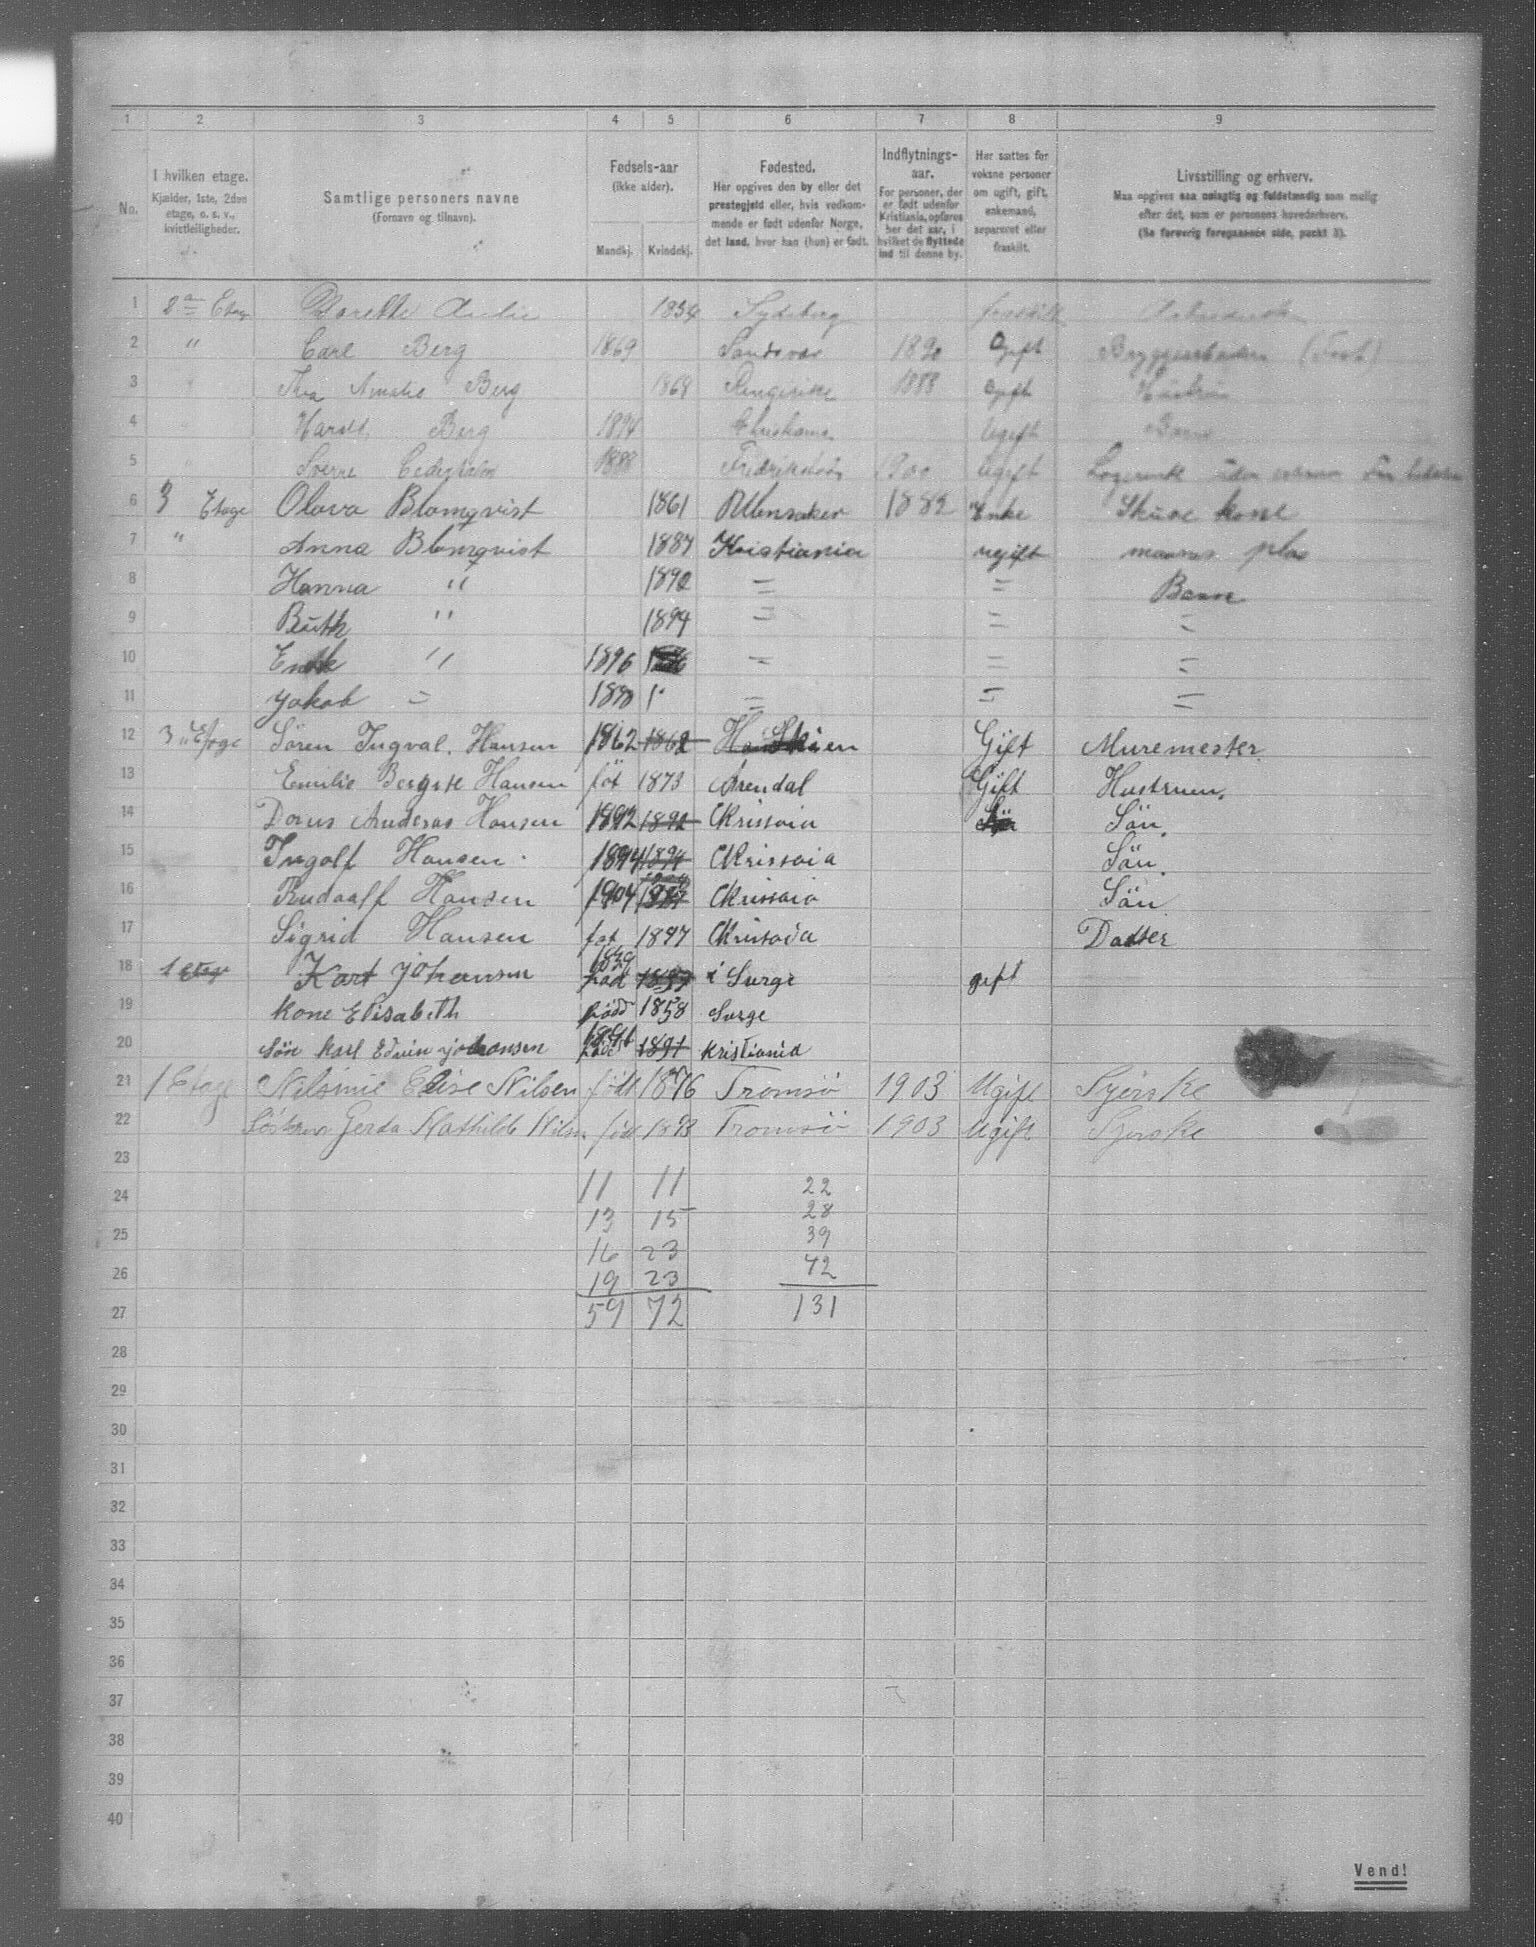 1 2 3 4 5 6 7 8 9
No.
I hvilken etage.
Kjælder, 1ste, 2den
etage, o. s. v.,
kvistleiligheder.
Samtlige personers navne
(Fornavn og tilnavn).
Fødsels-aar
(ikke alder).
Mandkj. Kvindekj.
Fødested.
Her opgives den by eller det
prestegjeld eller, hvis vedkom-
mende er født udenfor Norge,
det land, hvor han (hun) er født.
Indflytnings-
aar.
For personer, der
er født udenfor
Kristiania, opføres
her det aar, i
hvilket de flyttede
ind til denne by.
Her sættes for
voksne personer
om ugift, gift,
enkemand,
separeret eller
fraskilt.
Livsstilling og erhverv.
Maa opgives saa nøiagtig og fuldstændig som mulig
efter det, som er personens hovederhverv.
(Se forøvrig foregaaende side, punkt 3).
1 2den Etage Dorethe 1834 fraskilt
2 " Carl Berg 1869 Sandsvær 1890 Gift Bryggearbeider
3 " Amalie Berg 1868 Ringerike 1888 Gift Hustru
4 " Harald Berg 1894 Ugift Barn
5 " Sverre 1888 Fredrikstad 1900 Ugift Logerende uden
6 3 Etage Olava Blomqvist 1861 Ullensaker 1882 Enke Skure kone
7 " Anna Blomqvist 1887 Kristiania ugift
8 Hanna " 1890 = = Barn
9 Ruth " 1894 = = =
10 " 1896 = = =
11 Jakob = = = =
12 3 Etage Sören Ingval. Hansen 1862 1862 Skien Gift Muremester.
13 Emilie Bergite Hansen föt 1873 Arendal Gift Hustruen.
14 Dorus Anderas Hansen 1892 1892 Chrissaia Sön.
15 Ingolf Hansen. 1894 1894 Chrissaia Sön.
16 Rudolf Hansen 1904 Chrissaia Sön
17 Sigrid Hansen föt 1897 Chrissaia Dotter
18 1 Etage Karl Johansen 1839 föd i Sverge gift
19 Kone Elisabeth född 1858 Sverge
20 Sön Karl Edvin johansen 1891 kristiania
21 1 Etage Nilsine Elise Nilsen född 1876 Tromsö 1903 Ugift Syerske
22 Gerda Mathilde född Tromsö 1903 Ugift Syerske
23
24 11 11 22
25 13 15 28
26 16 23 39
19 23 42
27 59 72 131
28
29
30
31
32
33
34
35
36
37
38
39
40
Vend!